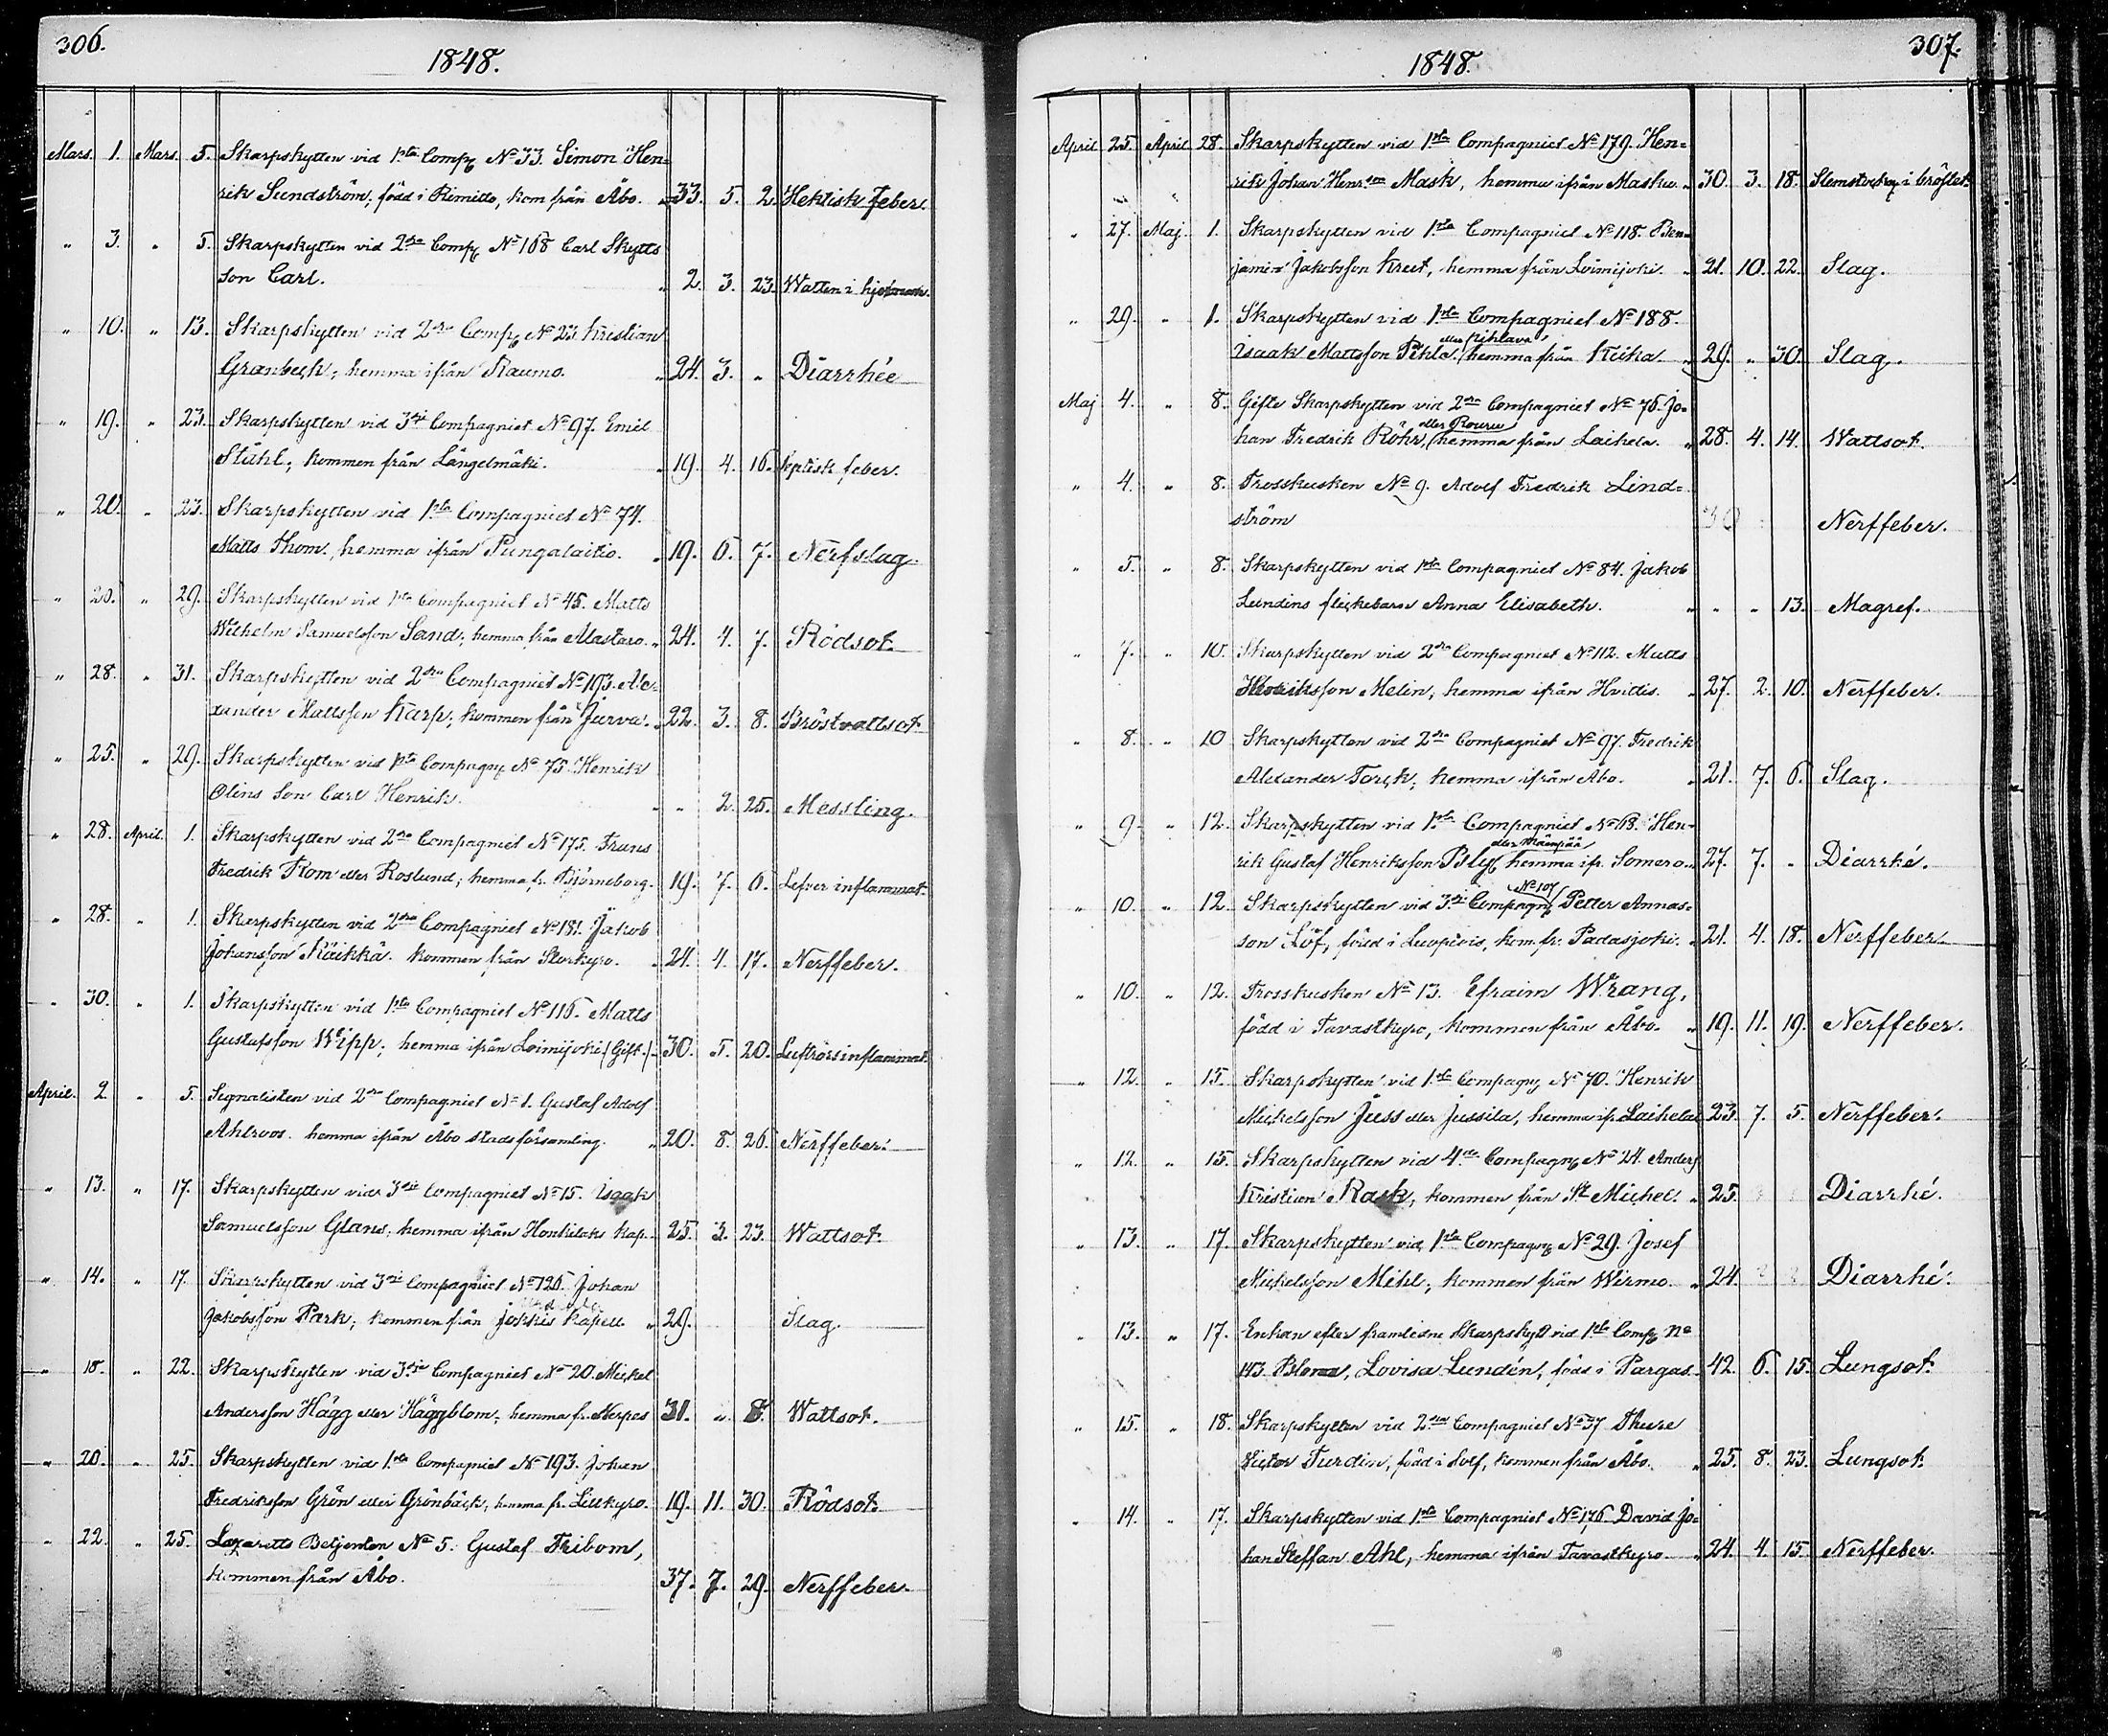 306.
1848.
Mars. 1. Mars. 5. Skarpskytten vid 1sta Comp. No 33. Simon Hen-
rik Sundström, född i Rimitto, kom från Åbo. " 33. 5. 2. Hektisk feber.
" 3. " 5. Skarpskytten vid 2dra Comp. No 168 Carl Skytts
son Carl. " 2. 3. 23. Watten i hjernan.
" 10. " 13. Skarpskytten vid 2dra Comp. No 23 Kristian
Granbeck, hemma ifrån Raumo. " 24. 3. " Diarrhée
" 19. " 23. Skarpskytten vid 3die Compagniet No 97. Emil
Ståhl, kommen från Längelmäki. " 19. 4. 16. feber.
" 20. " 23. Skarpskytten vid 1sta Compagniet No 74.
Matts Thom, hemma ifrån Pungalaitio. " 19. 6. 7. Nerfslag.
" 26. " 29. Skarpskytten vid 1sta Compagniet No 45. Matts
Wilhelm Samuelsson Sand, hemma från Alastaro. " 24. 4. 7. Rödsot.
" 28. " 31. Skarpskytten vid 2dra Compagniet No 193. Ale-
xander Mattsson Karp, kommen från Jurva. " 22. 3. 8. Bröstvattsot.
" 25. " 29. Skarpskytten vid 1sta Compagn. No 75. Henrik
Olins son Carl Henrik. " " 2. 25. Messling.
" 28. April. 1. Skarpskytten vid 2dra Compagniet No 175. Frans
Fredrik Rom eller Roslund, hemma fr. Björneborg. 19. 7. 6. Lefver inflammat.
" 28. " 1. Skarpskytten vid 2dra Compagniet No 181. Jakob
Johansson Räikkä. kommen från Storkyro. " 24. 4. 17. Nerffeber.
" 30. " 1. Skarpskytten vid 1sta Compagniet No 116. Matts
Gustafsson Wipp, hemma ifrån Loimijoki (Gift.) 30. 5. 20. Luftrörsinflammat.
April. 2. " 5. Segnalisten vid 2dra Compagniet No 1. Gustaf Adolf
Ahlroos. hemma ifrån Åbo stadsförsamling. " 20. 8. 26. Nerffeber.
" 13. " 17. Skarpskytten vid 3die Compagniet No 15. Isaak
Samuelsson Glans, hemma ifrån Honkilaks kap. 25. 3. 23. Wattsot.
" 14. " 17. Skarpskytten vid 3die Compagniet No 126. Johan
Jakobsson Park, kommen från Jokkis kapell " 29. Slag.
" 18. " 22. Skarpskytten vid 3die Compagniet No 20. Mickel
Andersson Hägg eller Häggblom, hemma fr. Nerpes 31. " 8. Wattsot.
" 20. " 25. Skarpskytten vid 1sta Compagniet No 193. Johan
Fredriksson Grön eller Grönbäck, hemma fr. Lillkyro. 19. 11. 30. Rödsot.
" 22. " 25. Lazaretts Betjenten No 5. Gustaf Fribom,
kommen från Åbo. 37. 7. 29. Nerffeber.
307.
1848.
April 25. April 28. Skarpskytten vid 1sta Compagniet No 179. Hen-
rik Johan Henrsson Mask, hemma ifrån Masku. " 30. 3. 18. i bröstet.
" 27. Maj. 1. Skarpskytten vid 1sta Compagniet No 118. Ben-
jamin Jakobsson Kreet, hemma från Loimijoki. " 21. 10. 22. Slag.
" 29. " 1. Skarpskytten vid 1sta Compagniet No 188.
eller Pihlava
Isaak Mattsson Pihla, hemma från Kiika. " 29. " 30. Slag.
Maj 4. " 8. Gifte Skarpskytten vid 2dra Compagniet No 76. Jo-
eller Rouru
han Fredrik Röhr, hemma från Laihela. " 28. 4. 14. Wattsot.
" 4. " 8. Trosskusken No 9. Adolf Fredrik Lind-
ström 30 Nerffeber.
" 5. " 8. Skarpskytten vid 1sta Compagniet No 84. Jakob
Lundins flickebarn Anna Elisabeth. " " " 13. Magref.
" 7. " 10. Skarpskytten vid 2dra Compagniet No 112. Matts
Henriksson Melin, hemma ifrån Hvittis. " 27. 2. 10. Nerffeber.
" 8. " 10 Skarpskytten vid 2dra Compagniet No 97. Fredrik
Alexander Torck, hemma ifrån Åbo. " 21. 7. 6. Slag.
" 9. " 12. Skarpskytten vid 1sta Compagniet No 68. Hen-
eller Mäenpää
rik Gustaf Henriksson Bly, hemma ifr. Somero. " 27. 7. " Diarrhé.
No 107
" 10. " 12. Skarpskytten vid 3die Compagn. Petter Annas-
son Löf, född i Luopiois, kom. fr. Padasjoki. " 21. 4. 18. Nerffeber.
" 10. " 12. Trosskusken No 13. Efraim Wrang,
född i Tavastkyro, kommen från Åbo. " 19. 11. 19. Nerffeber.
" 12. " 15. Skarpskytten vid 1sta Compagn. No 70. Henrik
Mickelsson Juss eller Jussila, hemma ifr. Laihela 23. 7. 5. Nerffeber.
" 12. " 15. Skarpskytten vid 4de Compagn. No 24. Anders
Kristian Rask, kommen från St Michel. " 25. Diarrhé.
" 13. " 17. Skarpskytten vid 1sta Compagn. No 29. Josef
Mickelsson Mihl, kommen från Wirmo. " 24. Diarrhé.
" 13. " 17. Enkan efter framlidne Skarpskytt vid 1sta Comp. No
143. Blomm, Lovisa Lundén, född i Pargas. 42. 6. 15. Lungsot.
" 15. " 18. Skarpskytten vid 2dra Compagniet No 37 Thure
Victor Turdin, född i Solf, kommen från Åbo. " 25. 8. 23. Lungsot.
" 14. " 17. Skarpskytten vid 1sta Compagniet No 176. David Jo-
han Steffan Ahl, hemma ifrån Tavastkyro. " 24. 4. 15. Nerffeber.